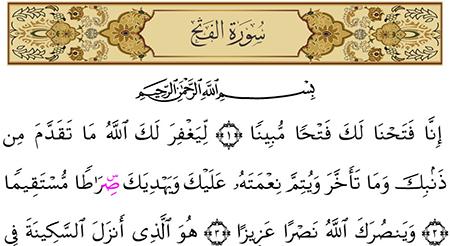 سُورَةُ الفَتْحِ
بِسْمِ اللَّهِ الرَّحْمَٰنِ الرَّحِيمِ
إِنَّا فَتَحْنَا لَكَ فَتْحًا مُّبِينًا ﴿١﴾ لِّيَغْفِرَ لَكَ اللَّهُ مَا تَقَدَّمَ مِن
ذَنۢبِكَ وَمَا تَأَخَّرَ وَيُتِمَّ نِعْمَتَهُۥ عَلَيْكَ وَيَهْدِيَكَ صِرَٰطًا مُّسْتَقِيمًا
﴿٢﴾ وَيَنصُرَكَ اللَّهُ نَصْرًا عَزِيزًا ﴿٣﴾ هُوَ الَّذِي أَنزَلَ السَّكِينَةَ فِي